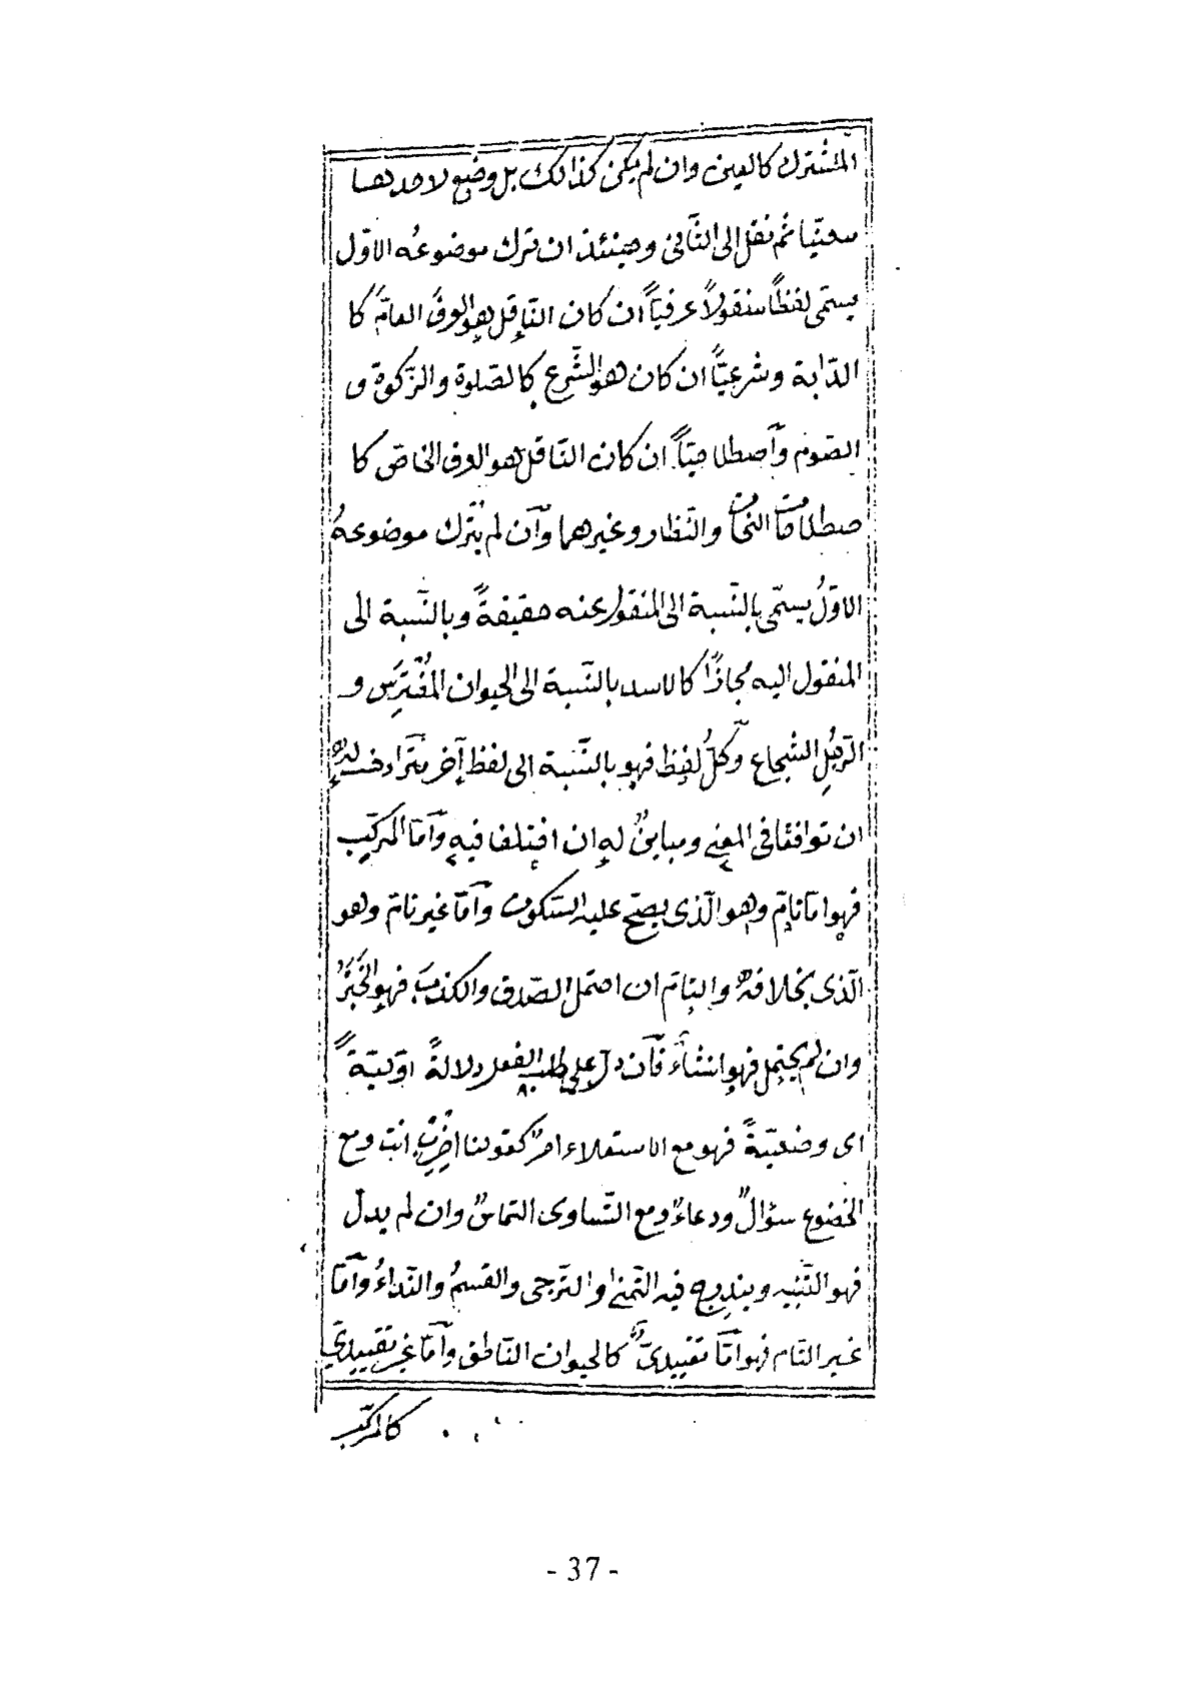 المشترك كالعين وان لم يكن كذالك بل وضع لاحدهما
معنيا ثم نقل الى الثانى وحينئذ ان ترك موضوعه الاوّل
يسمّى لفظًا منقولًا عرفيّاً ان كان النّاقل هو العرف العامّ كا
الدّابة وشرعيّاً ان كان هو الشّرع كالصّلوة والزّكوة و
الصّوم وأصطلاحيّاً ان كان النّاقل هو العرف الخاصّ كا
صطلاحات النحات والنّظار وغيرهما وان لم يترك موضوعهُ
الاوّلُ يسمّى بالنّسبة الى المنقول عنه حقيقةً وبالنّسبة الى
المنقول اليه مجازًا كالاسد بالنّسبة الى الحيوان المُفْتَرِس و
الرّجلِ الشجاع وكلُّ لفظ فهو بالنّسبة الى لفظ آخر مترادف لهُ
ان توافقا فى المعنى ومباينٌ له ان اختلفا فيه وامّا المركّب
فهو امّا تامّ وهو الّذى يصحّ عليه السّكوت وامّا غير تامّ وهو
الّذى بخلافه والتامّ ان احتمل الصّدق والكذب فهو الخَبَرُ
وان لم يحتمل فهو انشاءٌ فان دلّ على طلب الفعل دلالةً اوّليّةً
اى وضعيّةً فهو مع الاستعلاء امرٌ كقولنا اِضْرِبْ انت ومع
الخضوع سؤالٌ ودعاءٌ ومع التّساوى التماسٌ وان لم يدلّ
فهو التّنبيه ويندرج فيه التّمنى والترّجى والقسمُ والنّداءُ وامّا
غير التام فهو امّا تقييدىٌّ كالحيوان النّاطق وامّا غير تقييدىّ
كالمركّب
- 37 -